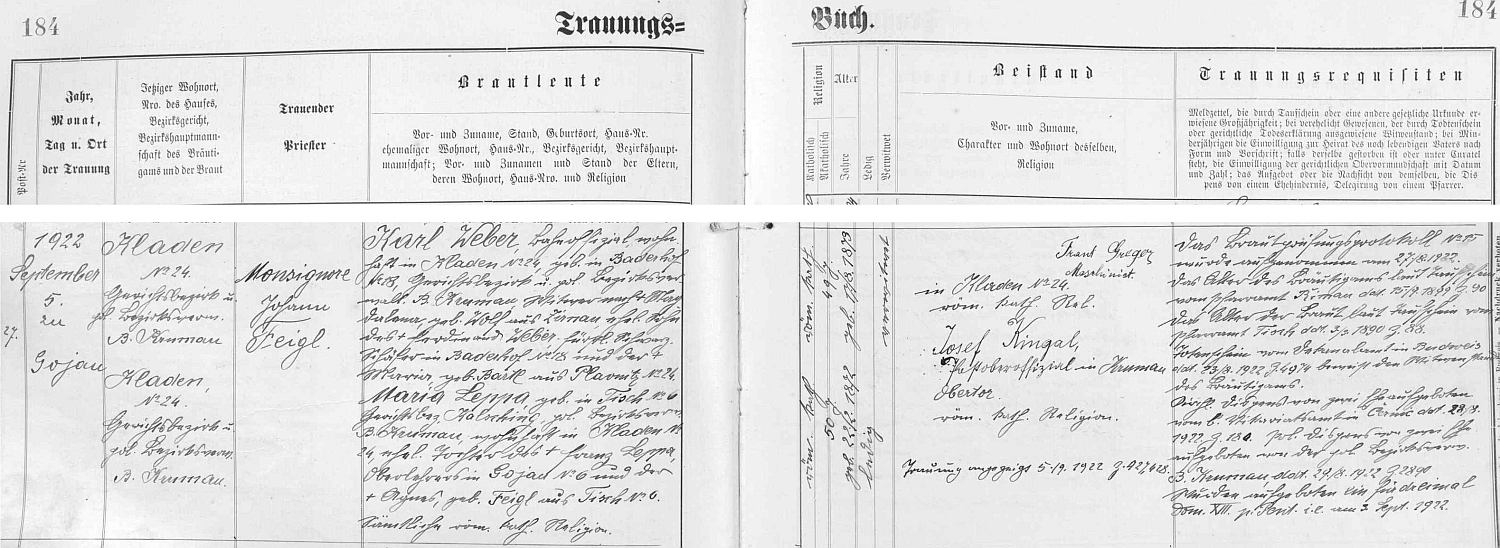 184
Trauungs=
Buch.
184
Post-Nr
Jahr,
Monat,
Tag u. Ort
der Trauung
Jetziger Wohnort,
Nro. des Hauses,
Bezirksgericht,
Bezirkshauptmann-
schaft des Bräuti-
gams und der Braut
Trauender
Priester
Brautleute
Vor- und Zuname, Stand, Geburtsort, Haus-Nr.
ehemaliger Wohnort, Haus-Nr., Bezirksgericht, Bezirkshaupt-
mannschaft; Vor- und Zunamen und Stand der Eltern,
deren Wohnort, Haus-Nro. und Religion
Religion
Katholisch
Akatholisch
Alter
Jahre
Ledig
Verwitwet
Beistand
Vor- und Zuname,
Charakter und Wohnort desselben,
Religion
Trauungsrequisiten
Meldzettel, die durch Taufschein oder eine andere gesetzliche Urkunde er-
wiesene Großjährigkeit; bei verehelicht Gewesenen, der durch Todtenschein
oder gerichtliche Todeserklärung ausgewiesene Witwenstand; bei Min-
derjährigen die Einwilligung zur Heirat des noch lebendigen Vaters nach
Form und Vorschrift; falls derselbe gestorben ist oder unter Curatel
steht, die Einwilligung der gerichtlichen Obervormundschaft mit Datum
und Zahl; das Aufgebot oder die Nachsicht von demselben, die Dis
pens von einem Ehehindernis, Delegirung von einem Pfarrer.
27.
1922
September
5.
zu
Gojau
Kladen
No 24.
Gerichtsbezirk u.
pol. Bezirksverw.
B. Kruman
Kladen,
No. 24.
Gerichtsbezirk u.
pol. Bezirksverw.
B. Kruman.
Monsignore
Johann
Feigl.
Karl Weber, Bahnoffizial, wohn
haft in Kladen No 24, geb. in Baderhof
No 18, Gerichtsbezirk u. pol. Bezirksver
walt. B. Kruman, Witwer nach Mag
dalena geb. Wolf aus Zirnau, ehel. Sohn
des + Ferdinand Weber fürstl. Schwarz.
Schäfer in Baderhof No 18 und der +
Maria, geb. Bark aus Plawnitz No 24.
Maria Leppa, geb. in Tisch No 6
Gerichtsbez. Kalsching, pol. Bezirksverw.
B. Kruman, wohnhaft in Kladen No
24, ehel. Tochter des + Franz Leppa,
Oberlehrers in Gojau No 6 und der
+ Agnes, geb. Feigl aus Tisch No 6.
Sämtliche röm. kath. Religion.
röm. kath.
röm. kath.
49 J.
geb. 17/8. 1873
50 J.
geb. 22/2. 1872
verwitwet
ledig
Frant Greger
Maschinist
in Kladen No 24.
röm. kath. Rel.
Josef Kingal,
Postoberoffizial in Kruman
Obertor.
röm. kath. Religion.
Trauung angezeigt 5./9. 1922 Z. 427/28.
Das Brautprüfungsprotokoll No 15
wurde aufgenommen am 27/8. 1922.
Das Alter des Bräutigams laut Taufschein
vom Pfarramt Rimau dat. 15/9. 1899 Z. 90
Das Alter der Braut laut Taufschein vom
Pfarramt Tisch ddt. 3/3 1890 Z. 88.
Totenschein vom Dekanalamt in Budweis
ddt. 23/8. 1922 Z. 4974 beweist den Witwerstand
des Bräutigams.
Kirchl. Dispens von zwei Eheaufgeboten
vom b. Vikariatsamt in Černic dat. 28/8.
1922 Z. 186. Pol. Dispens von zwei Ehe
aufgeboten von der pol. Bezirksverw.
B. Kruman, ddt. 29/8. 1922 Z. 2890
Wurden aufgeboten ein für dreimal
Dom. XIII. p. Pent. i. e. am 3. Sept. 1922.